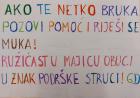 AKO TE NETKO BRUKA
POZOVI POMOĆ I RIJEŠI SE
MUKA!
RUŽIČASTU MAJICU OBUCI
U ZNAK PODRŠKE STRUCI! GD